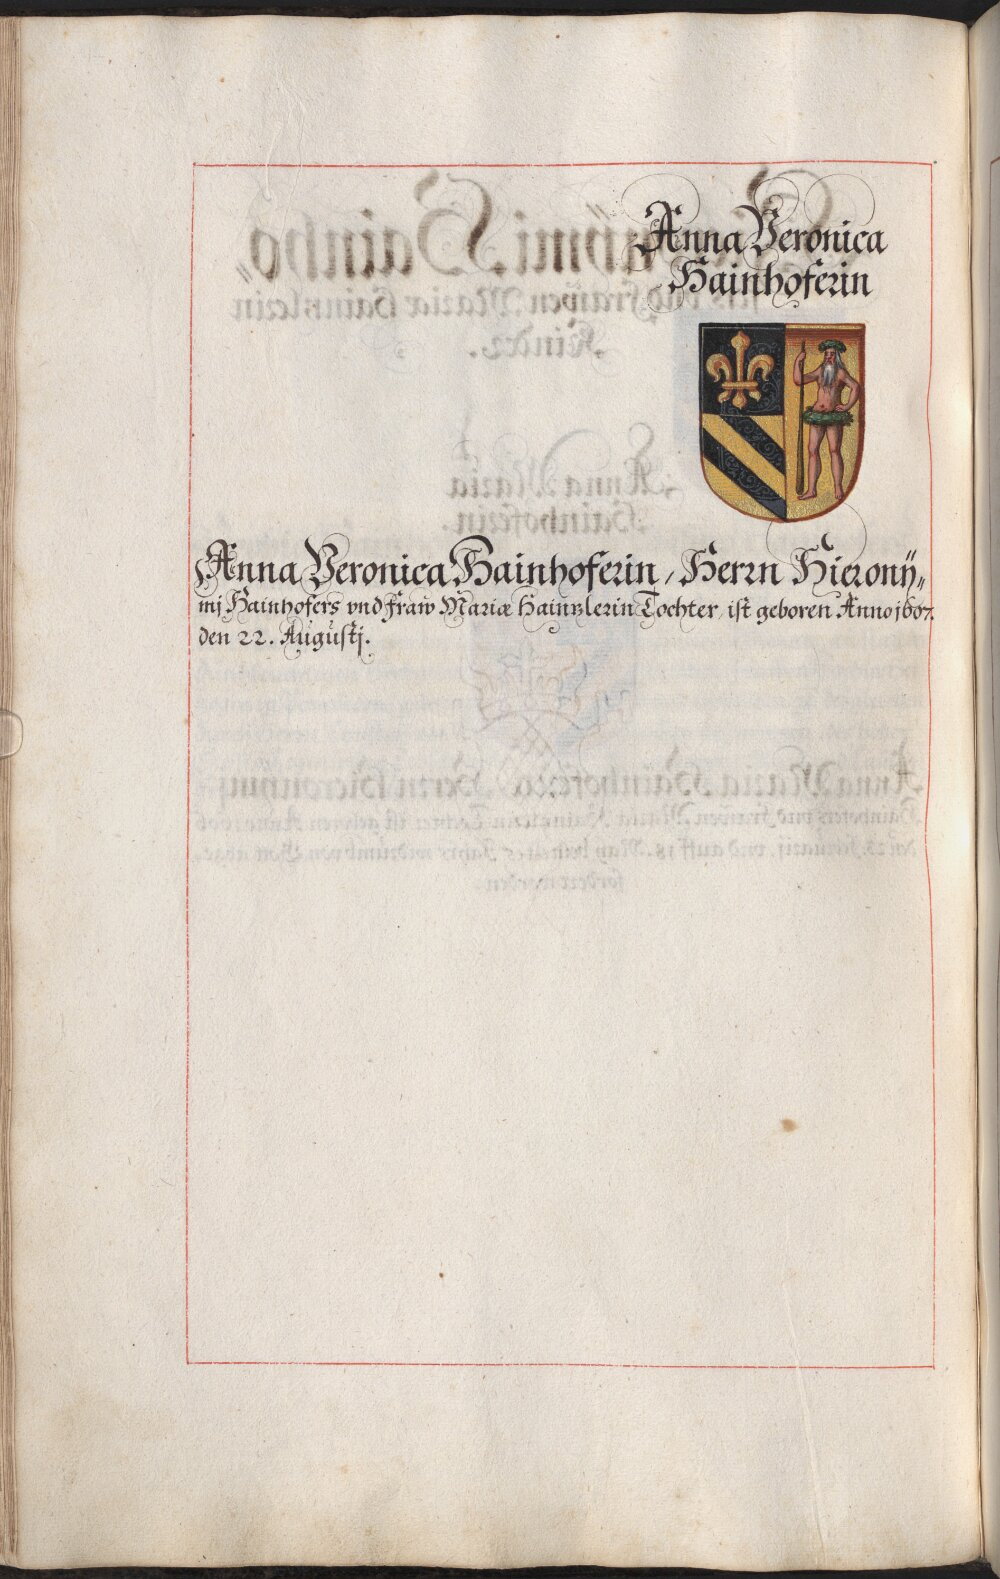 Anna Veronica
Hainhoferin
Anna Veronica Hainhoferin, Herrn Hieronÿ„
mj Hainhofers vnd fraw Mariæ Haintzlerin Tochter, ist geboren Anno 1607.
den 22. Augustj.